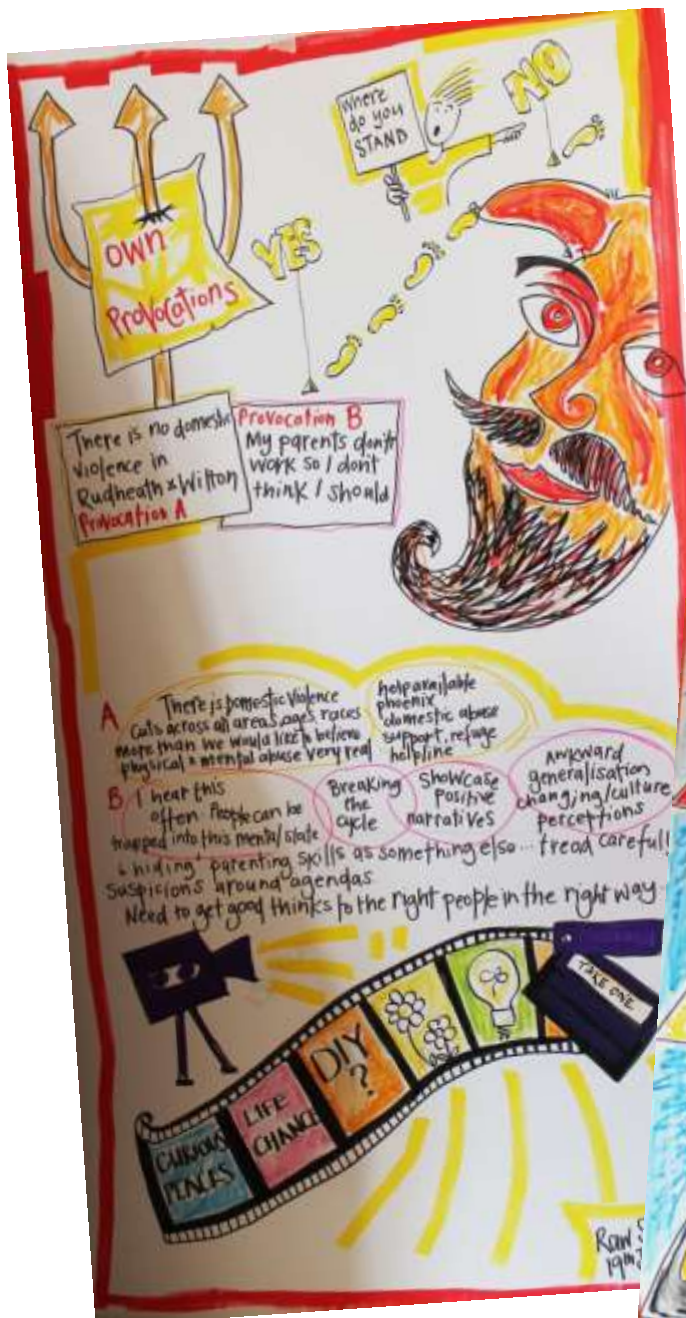 Where
do you
STAND
NO
OWN
PROVOCATIONS
YES
There is no domestic
violence in
Rudheath & Witton
PROVOCATION A
PROVOCATION B
My parents don't
work so I don't
think I should
A
There is Domestic Violence
Cuts across all areas, ages races
more than we would like to believe
physical & mental abuse very real
help available
phoenix
domestic abuse
support, refuge
helpline
B I hear this
often. People can be
trapped into this mental state
Breaking
the
cycle
Showcase
Positive
narratives
Awkward
generalisation
changing/culture
perceptions
'hiding' parenting skills as something else... tread careful!
suspicions around agendas
Need to get good thinks to the right people in the right way
TAKE ONE
DIY
?
LIFE
CHANCE
CURIOUS
PLACES
Raw
19th